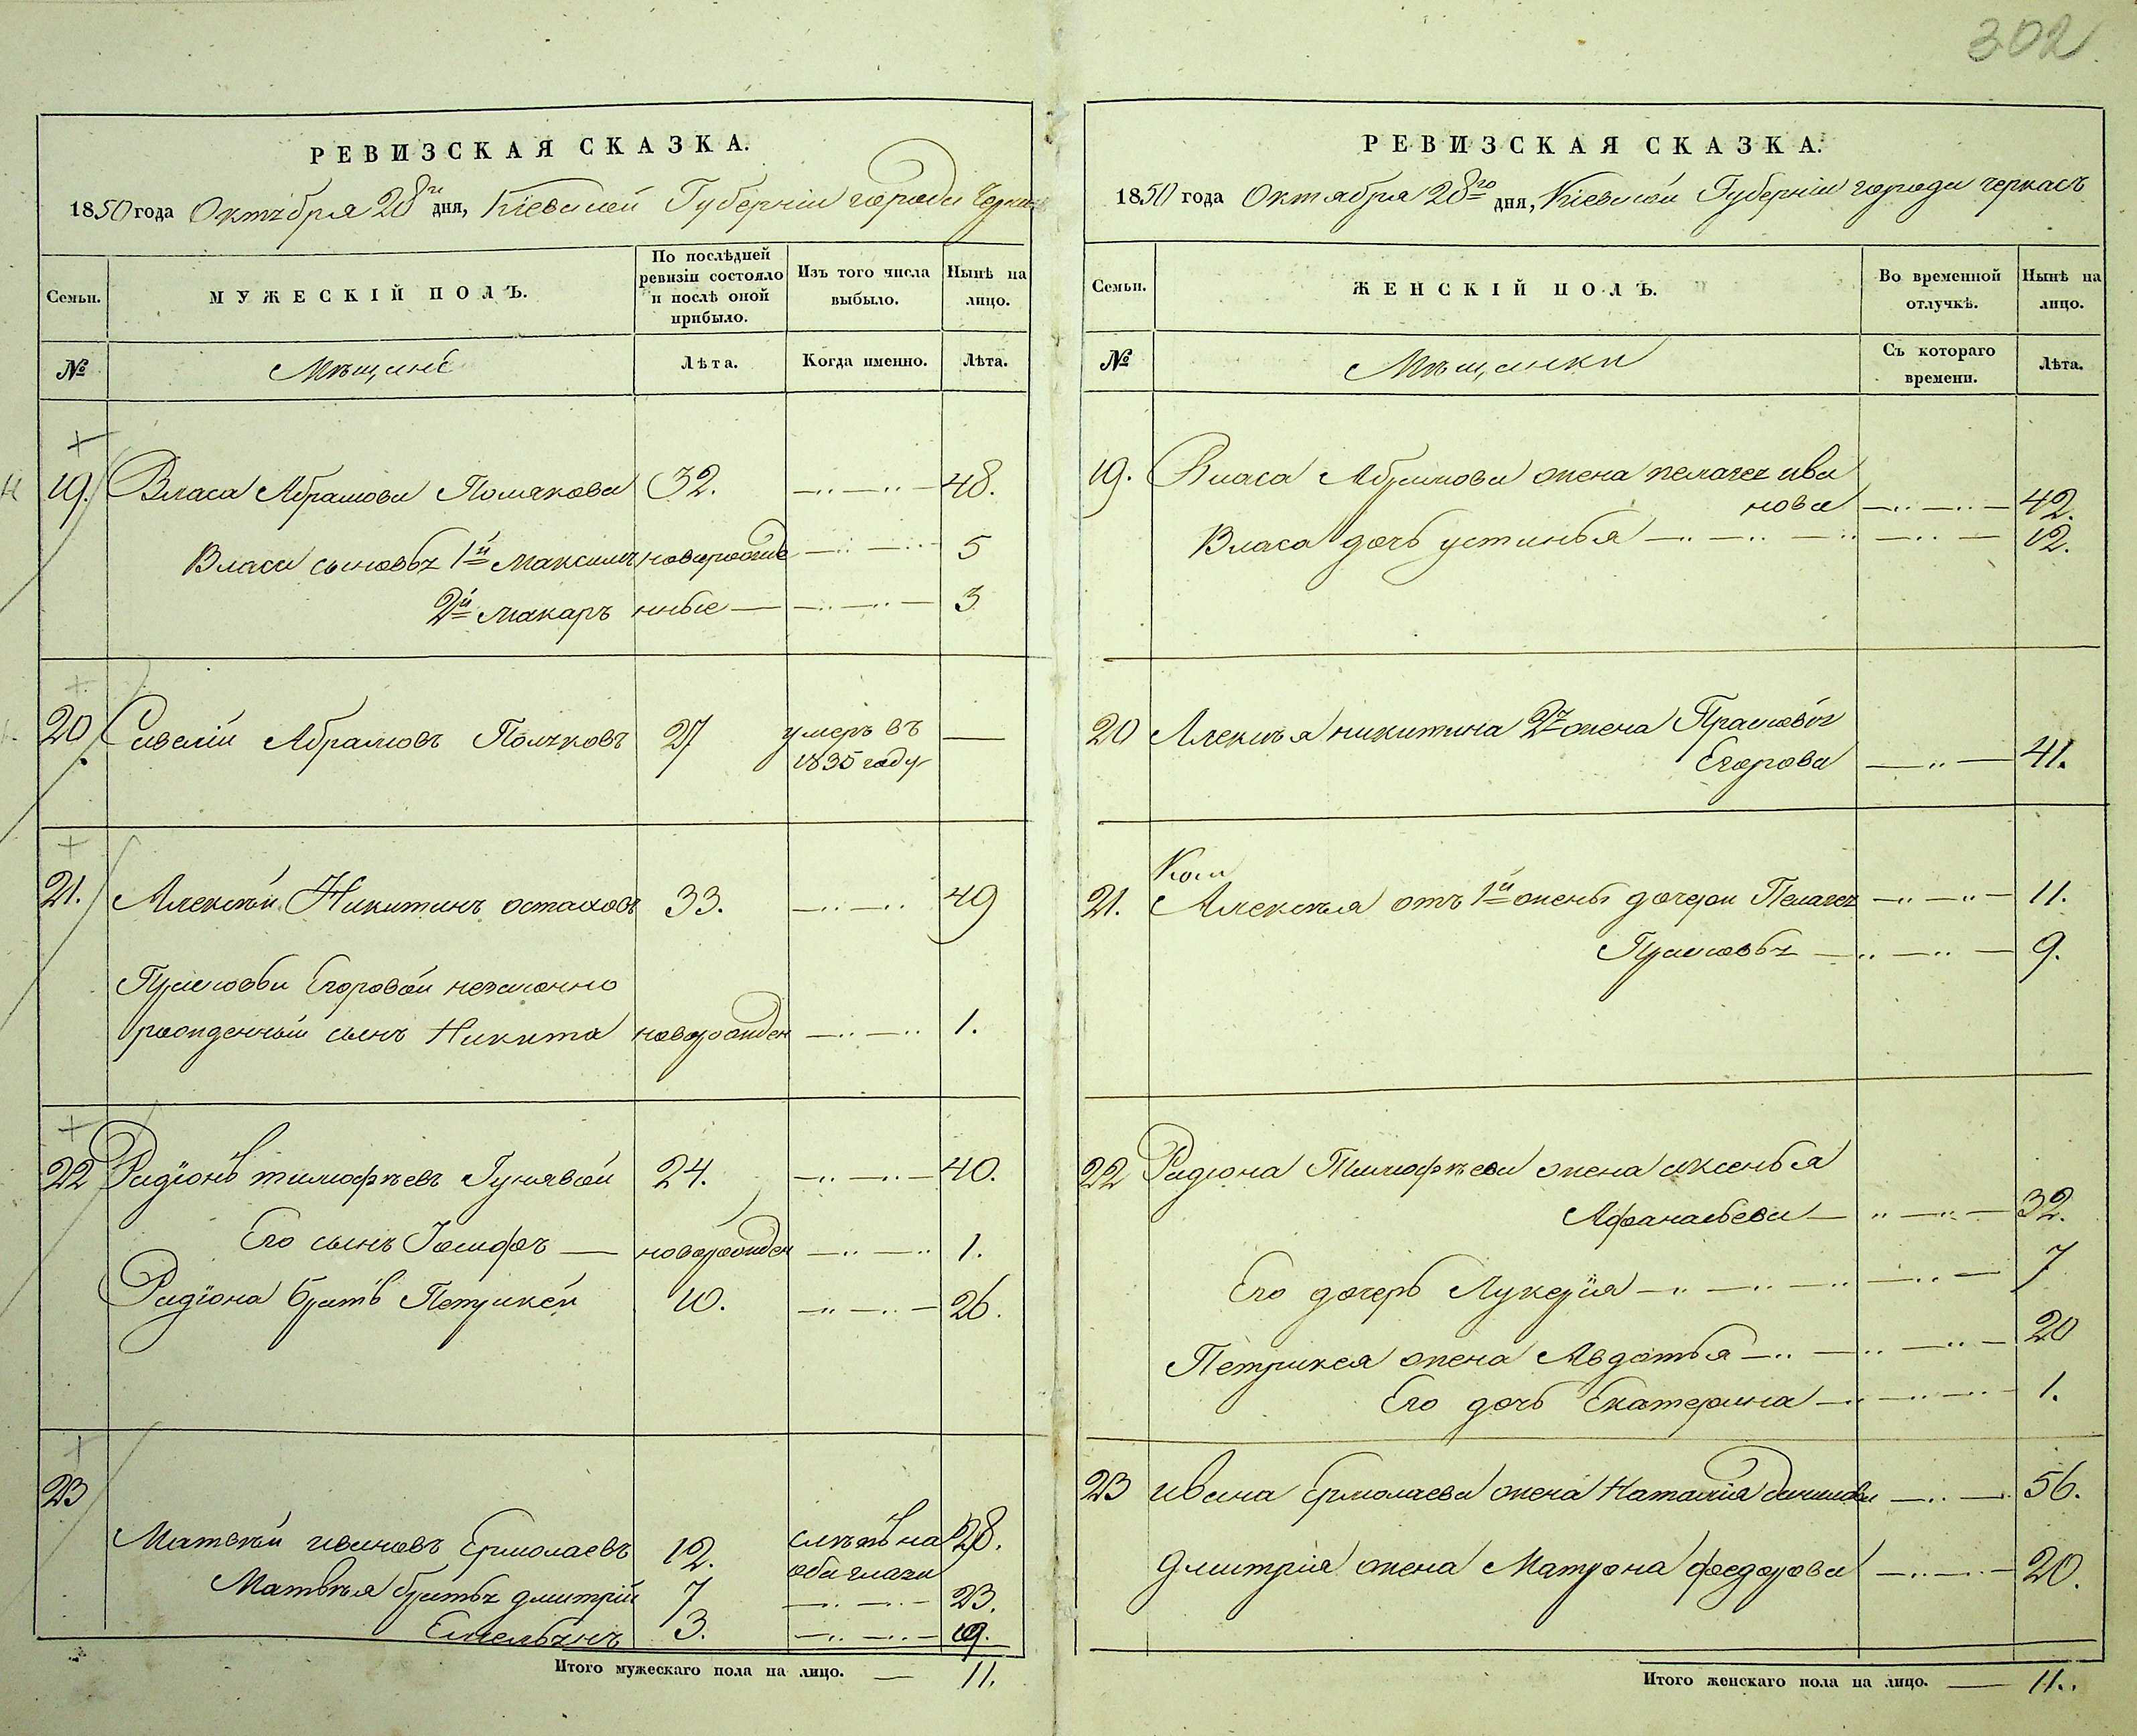 302
РЕВИЗСКАЯ СКАЗКА.
1850 года Октября 28го дня, Кіевской Губерніи города Черкас
Семьи.
МУЖЕСКІЙ ПОЛЪ.
По послѣдней ревизіи состояло и послѣ оной прибыло.
Изъ того числа выбыло.
Нынѣ на лицо.
№
Мѣщане
Лѣта.
Когда именно.
Лѣта.
19. Власа Абрамова Полякова 32. 48.
Власа сыновья 1й Максимъ новорожде 5
2й Макаръ нные 3
20 Савелій Абрамовъ Поляковъ 27 умеръ въ
1835 году
21. Алексѣй Никитинъ Остаховъ 33. 49
Прасковьи Егоровой незаконно
рожденный сынъ Никита новорожден 1.
22 Радіонъ тимофѣевъ Гунявой 24. 40.
Его сынъ Іосифъ новорожден 1.
Радіона братъ Петрикей 10. 26.
23
Матвѣй ивановъ Ермолаевъ 12. слѣпъ на 28.
оба глаза
Матвѣя братья дмитрій 7 23.
Емельянъ 3. 19.
Итого мужескаго пола на лицо. 11.
РЕВИЗСКАЯ СКАЗКА.
1850 года Октября 28го дня, Кіевской Губерніи города черкасъ
Семьи.
ЖЕНСКІЙ ПОЛЪ.
Во временной отлучкѣ.
Нынѣ на лицо.
№
Мѣщанки
Съ котораго времени.
Лѣта.
19. Власа Абрамова жена пелагея ива
нова 42.
Власа дочь устинья 12.
20 Алексѣя никитина 2я жена Прасковья
Егорова 41.
21. Алексѣя отъ 1й жены дочери Пелагея 11.
Прасковья 9.
22 Радіона Тимофѣева жена аксенья
Афанасьева 32.
Его дочерь Лукерія 7
Петрикея жена Авдотья 20
Его дочь Екатерина 1.
23 ивана Ермолаева жена Наталія 56.
дмитрія жена Матрона федорова 20.
Итого женскаго пола на лицо. 11.